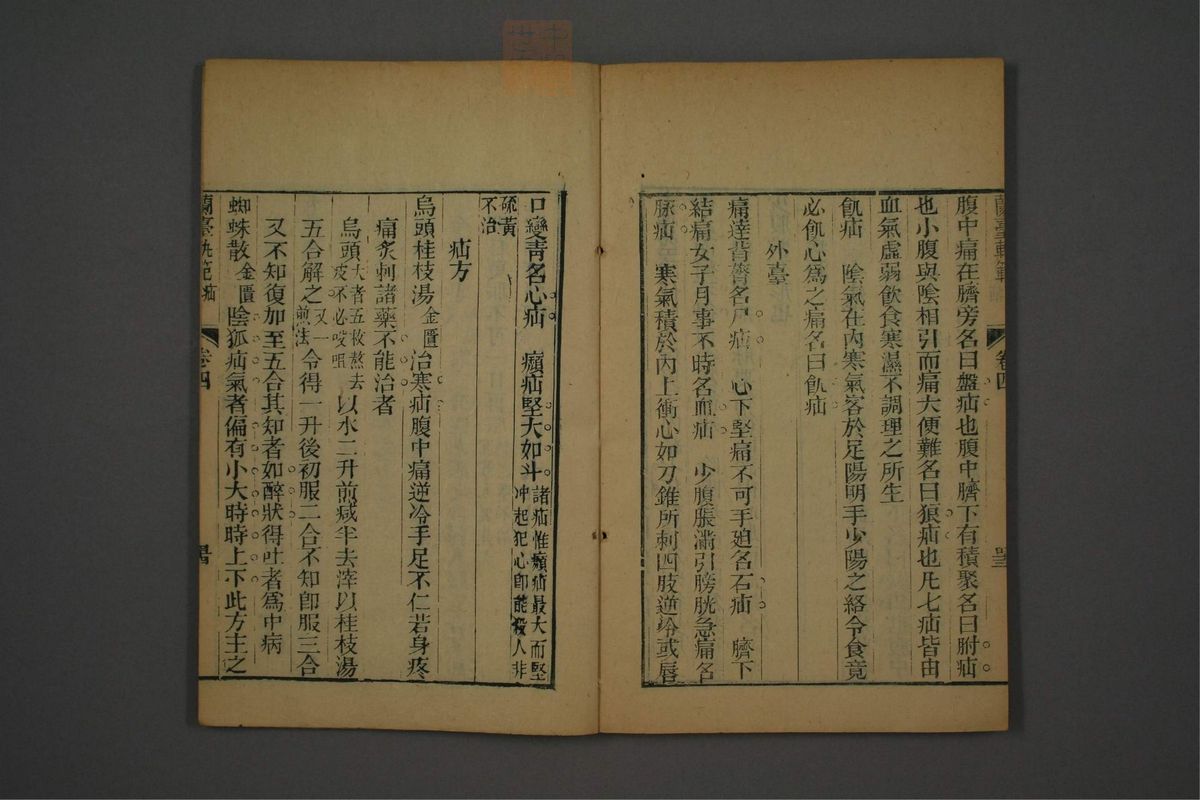 蘭臺軌範 疝 卷四
腹中痛在臍旁名曰盤疝也腹中臍下有積聚名曰胕疝
也小腹與陰相引而痛大便難名曰狼疝也凡七疝皆由
血氣虛弱飲食寒濕不調理之所生
飢疝 陰氣在內寒氣客於足陽明手少陽之絡令食竟
必飢心為之痛名曰飢疝
外臺
痛達背膂名尸疝 心下堅痛不可手廹名石疝 臍下
結痛女子月事不時名血疝 少腹脹滿引膀胱急痛名
脉疝 寒氣積於內上衝心如刀錐所刺四肢逆冷或唇
口變青名心疝 㿗疝堅大如斗諸疝惟㿗疝最大而堅冲起犯心卽能殺人非
硫黃不治
疝方
烏頭桂枝湯金匱 治寒疝腹中痛逆冷手足不仁若身疼
痛炙刺諸藥不能治者
烏頭大者五枚熬去皮不必㕮咀以水二升煎减半去滓以桂枝湯
五合解之又一前法令得一升後初服二合不知卽服三合
又不知復加至五合其知者如醉狀得吐者爲中病
蜘蛛散金匱 陰狐疝氣者偏有小大時時上下此方主之
蘭臺軌範 疝 卷四